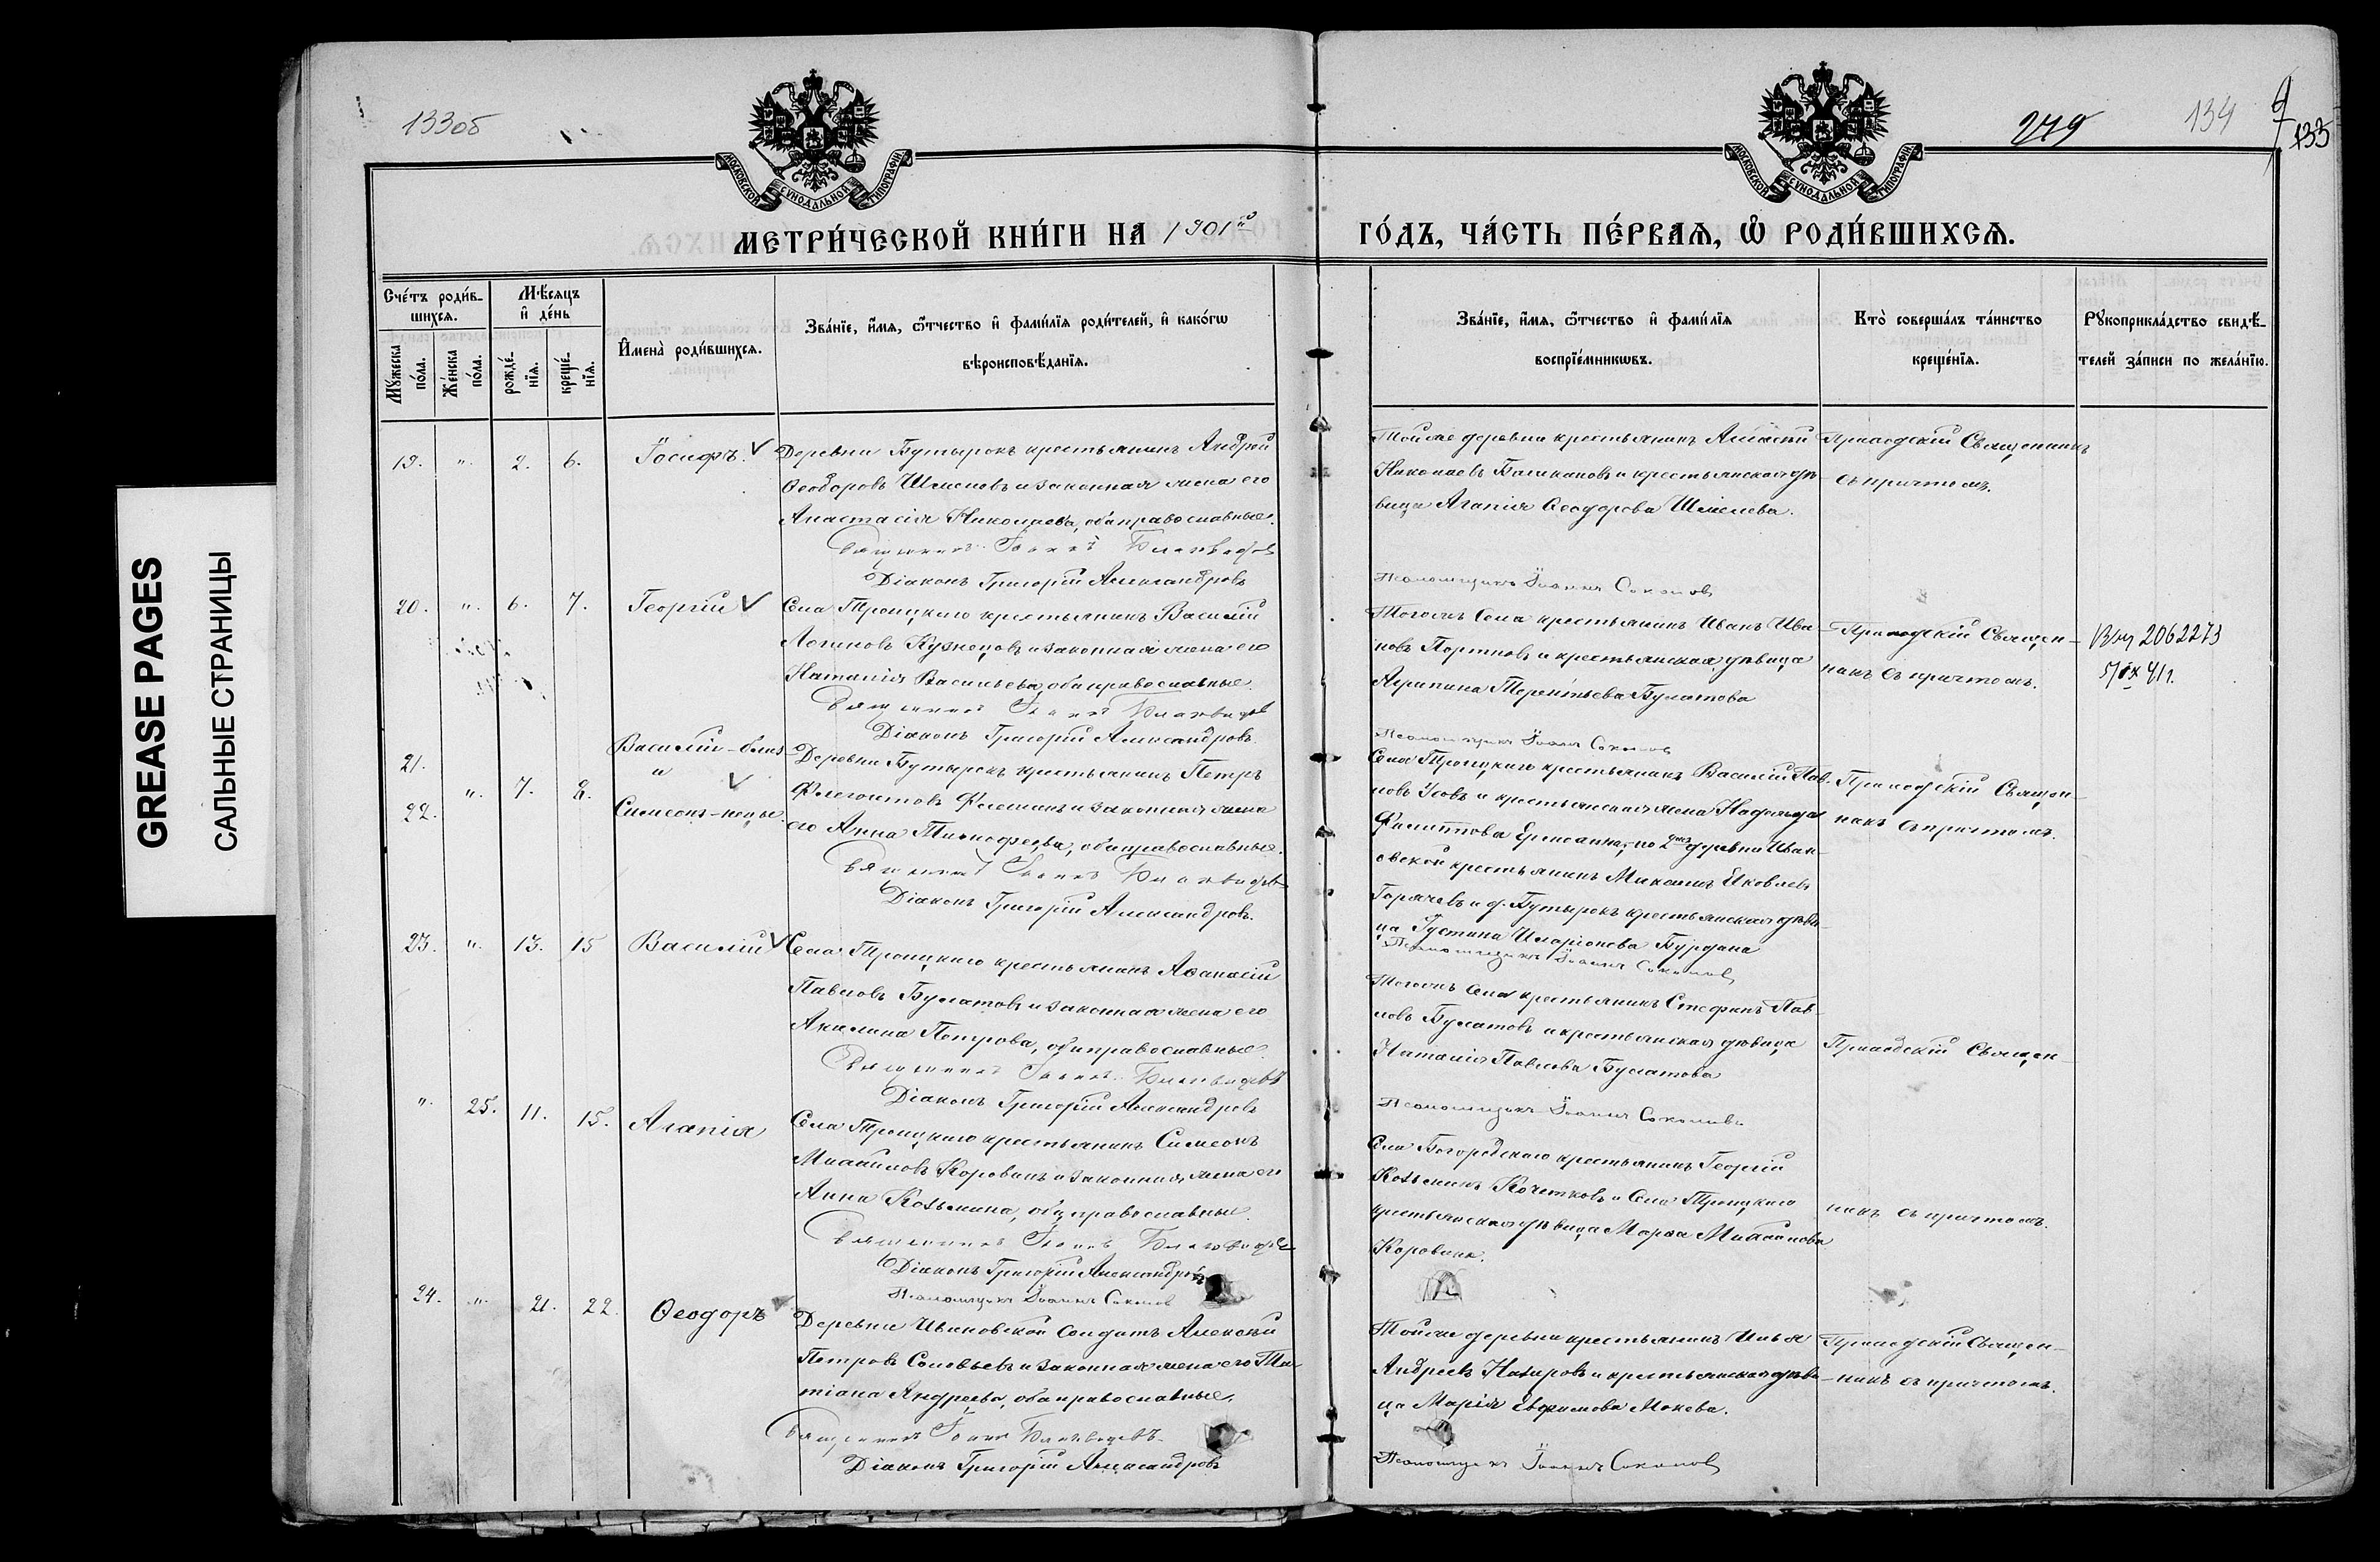 GREASE PAGES
САЛЬНЫЕ СТРАНИЦЫ
133об
279
134
133
МОСКОВСКОЙ СУНОДАЛЬНОЙ ТИПОГРАФІИ
МОСКОВСКОЙ СУНОДАЛЬНОЙ ТИПОГРАФІИ
МЕТРИ́ЧЕСКОЙ КНИ́ГИ НА 1901й ГО́ДЪ, ЧА́СТЬ ПЕ́РВАѦ, Ѡ РОДИ́ВШИХСѦ.
Сче́тъ роди́в-
шихсѧ.
Мꙋ́жеска по́ла.
Же́нска по́ла.
Мѣ́сѧцъ и҆ де́нь
рожде́-нїѧ.
креще́-нїѧ.
И҆мена̀ роди́вшихсѧ.
Зва́нїе, и҆́мѧ, ѻ҆́тчество и҆ фами́лїѧ роди́телей, и҆ како́гѡ
вѣроисповѣ́данїѧ.
Зва́нїе, и҆́мѧ, ѻ҆́тчество и҆ фами́лїѧ
воспрїе́мникѡвъ.
Кто̀ соверша́лъ та́инство
креще́нїѧ.
Рꙋкоприкла́дство свидѣ́-
телей за́писи по жела́нїю.
19. " 2. 6. Іосифъ. Деревни Бутырокъ крестьянинъ Андрей
Ѳеодоровъ Шмелевъ и законная жена его
Анастасія Николаева, оба православные.
Священникъ Іоаннъ
Діаконъ Григорій Александровъ
Тойже деревни крестьянинъ Алексѣй
Николаевъ и крестьянская дѣ-
вица Агапія Ѳеодорова Шмелева.
Псаломщикъ Іоаннъ Соколовъ
Приходскій Священникъ
съ причтомъ.
20. " 6. 7. Георгій Села Троицкаго крестьянинъ Василій
Логиновъ Кузнецовъ и законная жена его
Наталія Васильева, оба православные.
Священникъ Іоаннъ
Діаконъ Григорій Александровъ
Тогожъ Села крестьянинъ Иванъ Ива-
новъ Портновъ и крестьянская дѣвица
Агрипина Терентьева Булатова
Псаломщикъ Іоаннъ Соколовъ
Приходскій Священ-
никъ съ причтомъ.
2062273
5/IX 41г.
21. Василій - близ
и
22. " 7. 8. Симеонъ - нецы.
Деревни Бутырокъ крестьянинъ Петръ
Флегонтовъ и законная жена
его Анна Тимофеева, оба православные.
Священникъ Іоаннъ
Діаконъ Григорій Александровъ.
Села Троицкаго крестьянинъ Василій Пав-
ловъ Усовъ и крестьянская жена Надежда
Филиппова деревни Иван-
овской крестьянинъ Михаилъ Яковлевъ
Горячевъ и д. Бутырокъ крестьянская дѣви-
ца Іустина Иларіонова
Псаломщикъ Іоаннъ Соколовъ
Приходскій Священ-
никъ съ причтомъ.
23. " 13. 15 Василій Села Троицкаго крестьянинъ Аѳанасій
Павловъ Булатовъ и законная жена его
Акилина Петрова, оба православные.
Священникъ Іоаннъ
Діаконъ Григорій Александровъ
Тогожъ Села крестьянинъ Стефанъ Пав-
ловъ Булатовъ и крестьянская дѣвица
Наталія Павлова Булатова
Псаломщикъ Іоаннъ Соколовъ
Приходскій Священ-
" 25. 11. 15. Агапія Села Троицкаго крестьянинъ Симеонъ
Михаиловъ Коровинъ и законная жена его
Анна Козьмина, оба православные.
Священникъ Іоаннъ
Діаконъ Григорій Александровъ
Псаломщикъ Іоаннъ Соколовъ
Села Богородскаго крестьянинъ Георгій
Козьминъ Кочетковъ и Села Троицкаго
крестьянская дѣвица Марѳа Михаилова
Коровина.
никъ съ причтомъ.
24. " 21. 22. Ѳеодоръ
Деревни Ивановской Солдатъ Алексѣй
Петровъ Соловьевъ и законная жена его Та-
тіана Андреева, оба православные.
Священникъ Іоаннъ
Діаконъ Григорій Александровъ
Тойже деревни крестьянинъ Илья
Андреевъ Назаровъ и крестьянская дѣви-
ца Марія Евфимова Мокева.
Псаломщикъ Іоаннъ Соколовъ
Приходскій Священ-
никъ съ причтомъ.